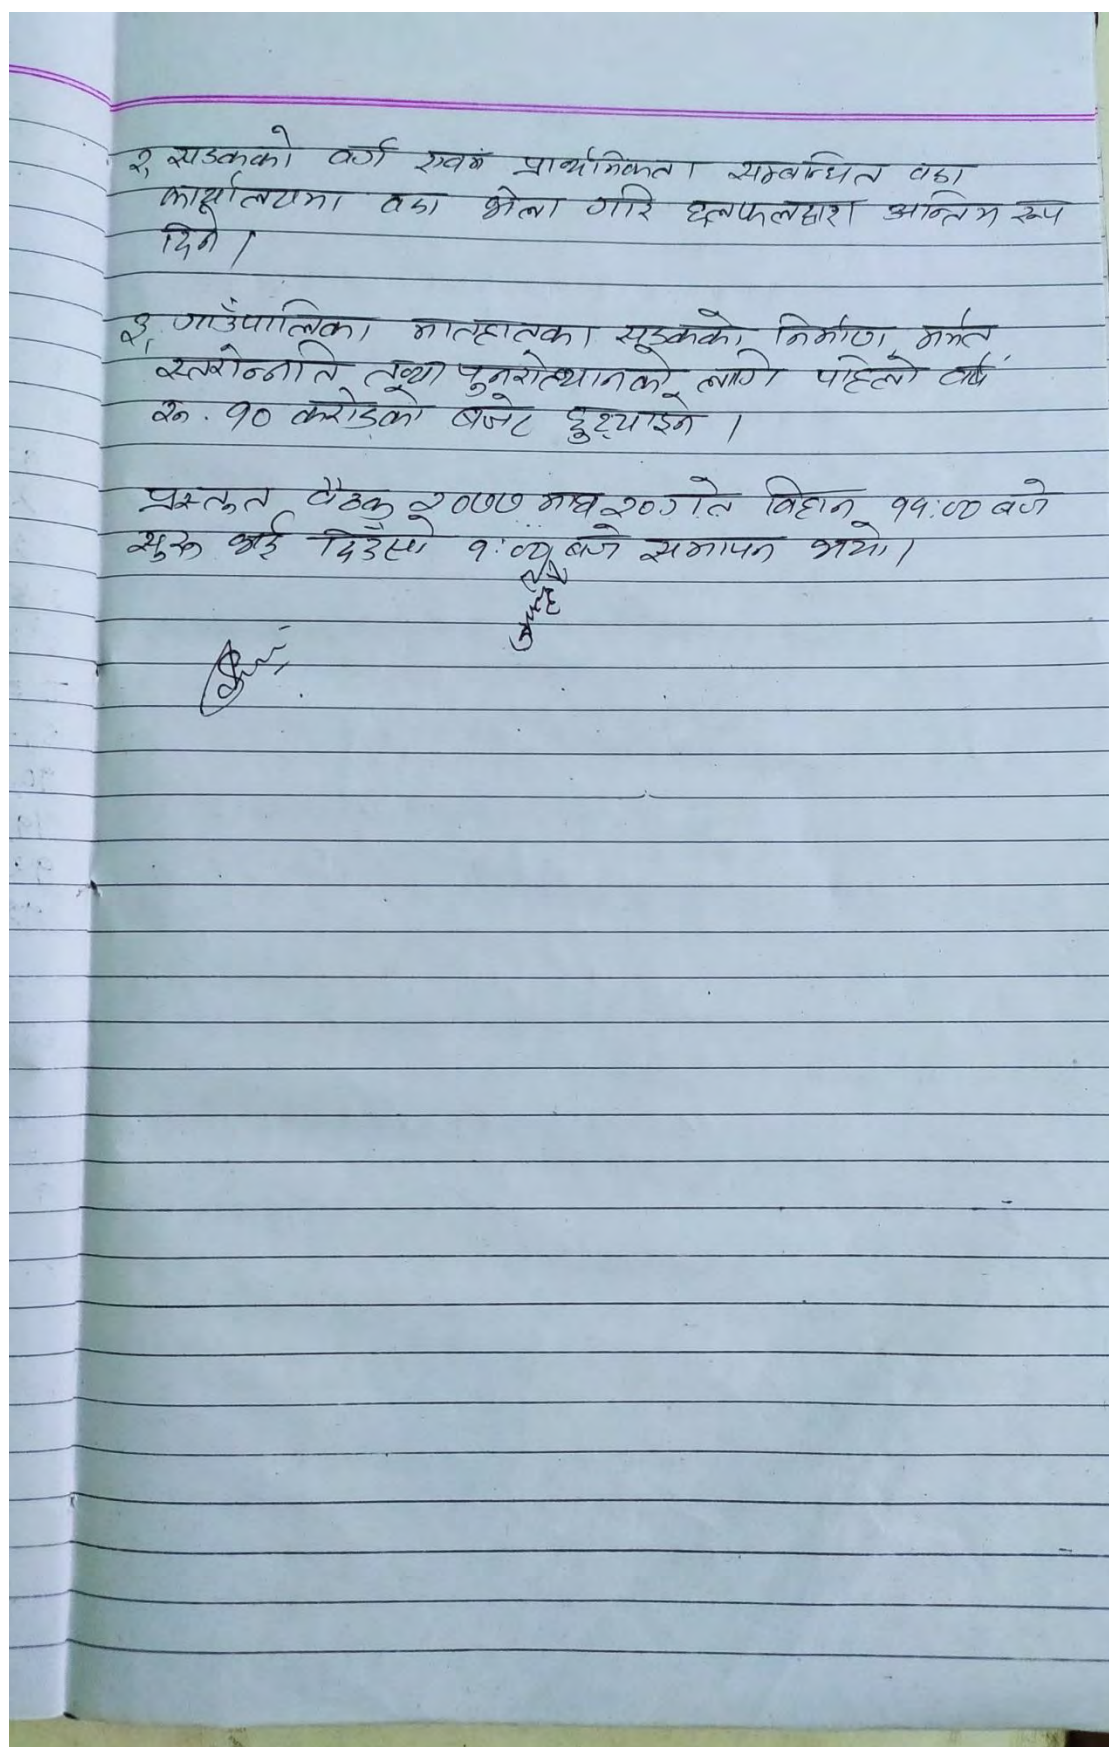 २, सडकको वर्ग एवमं प्राथमिकता सम्बन्धित वडा
कार्यालयमा वडा भेला गरि छलफलद्वारा अन्तिम रूप
दिने ।
३, गाउँपालिका मातहातका सडकको निर्माण, मर्मत
स्तरोन्नति तथा पुनरोत्थानको लागि पहिलो वर्ष
रू. १० करोडको बजेट छुट्याइने ।
प्रस्तुत बैठक २०७७ माघ २० गते विहान ११:०० बजे
सुरू भई दिउँसो १:०० बजे समापन भयो ।